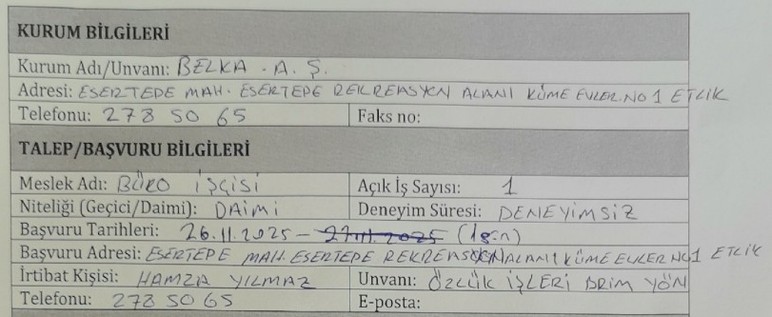 KURUM BİLGİLERİ
Kurum Adı/Unvanı: BELKA . A. Ş.
Adresi: ESERTEPE MAH. ESERTEPE REKREASYON ALANI KÜME EVLER.NO 1 ETLİK
Telefonu: 278 50 65 Faks no:
TALEP/BAŞVURU BİLGİLERİ
Meslek Adı: BÜRO İŞÇİSİ Açık İş Sayısı: 1
Niteliği (Geçici/Daimi): DAİMİ Deneyim Süresi: DENEYİMSİZ
Başvuru Tarihleri: 26.11.2025 – 27.11.2025 (1gün)
Başvuru Adresi: ESERTEPE MAH. ESERTEPE REKREASYON ALANI KÜME EVLER NO 1 ETLİK
İrtibat Kişisi: HAMZA YILMAZ Unvanı: ÖZLÜK İŞLERİ BRİM YÖN
Telefonu: 278 50 65 E-posta: